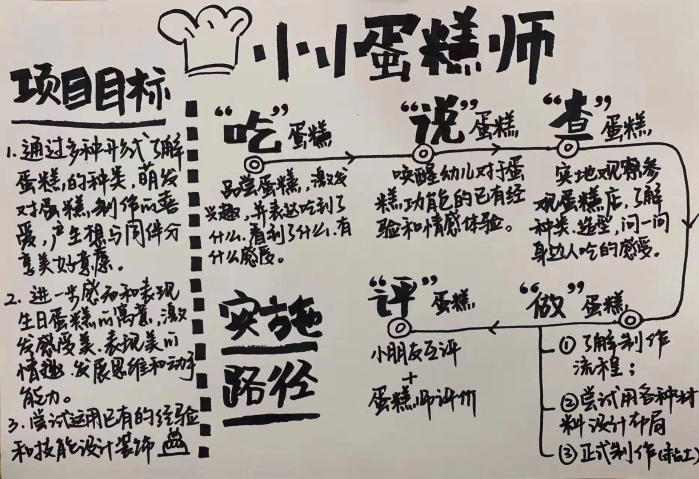 小小蛋糕师
项目目标
1.通过多种形式了解
蛋糕的种类,萌发
对蛋糕制作的喜
爱,产生想与同伴分
享美好意愿。
2.进一步感知和表现
生日蛋糕的寓意,激
发感受美、表现美的
情趣,发展思维和动手
能力。
3.尝试运用已有的经验
和技能设计装饰
“吃”蛋糕
品尝蛋糕,激发
兴趣,并表达吃到了
什么、看到了什么、有
什么感受。
“说”蛋糕
唤醒幼儿对于蛋
糕功能的已有经
验和情感体验。
“查”蛋糕
实地观察参
观蛋糕店,了解
种类、造型,问一问
身边人吃的感受。
“做”蛋糕
①了解制作
流程;
②尝试用各种材
料设计布局
③正式制作(粘土)
“评”蛋糕
小朋友互评
+
蛋糕师评价
实施
路径